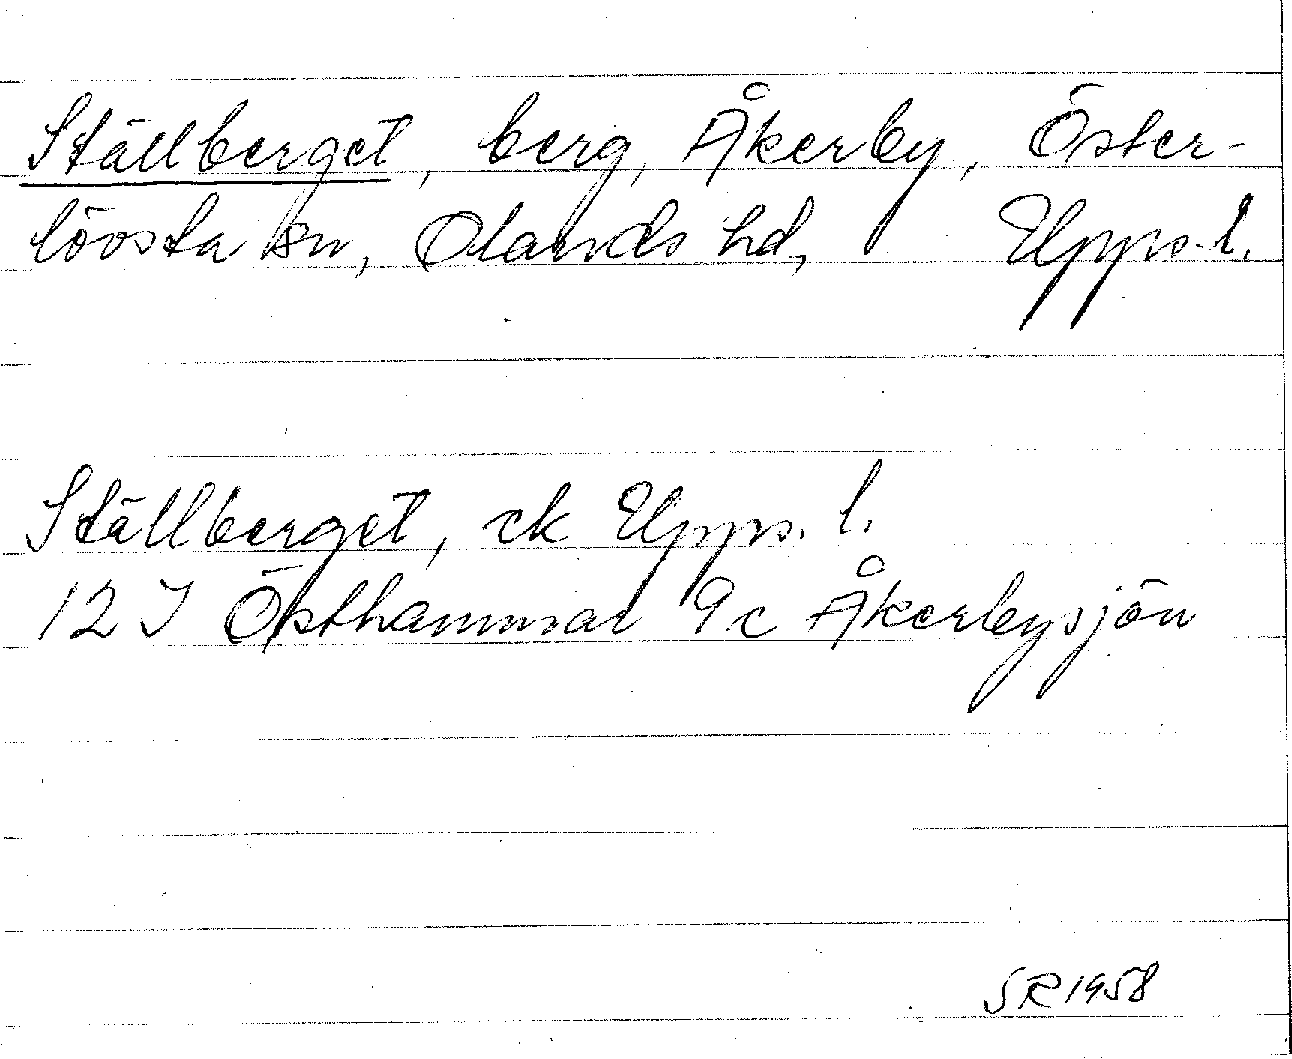 Ställberget, berg, Åkerby, Öster-
lövsta sn, Olands hd, Upps. l.
Ställberget, ek Upps. l.
12 I Östhammar 9c Åkerbysjön
SR 1958